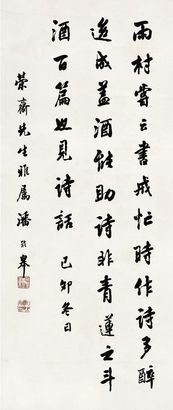 雨村嘗云書成忙時作詩多醉
後成蓋酒能助詩非青蓮之斗
酒百篇也見詩話 己卯冬日
榮齋先生雅屬 潘齡皋